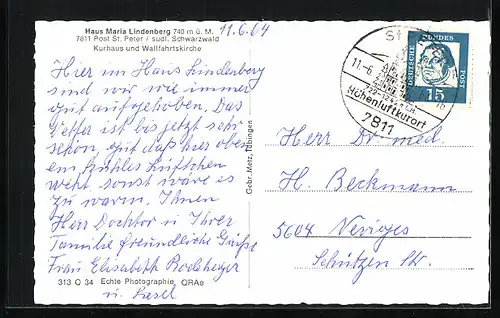 Haus Maria Lindenberg 740 m ü. M.
7811 Post St. Peter / südl. Schwarzwald
Kurhaus und Wallfahrtskirche
11.6.64
Hier im Haus Lindenberg
sind wir wie immer
gut aufgehoben. Das
Wetter ist bis jetzt sehr
schön, gut daß hier oben
ein kühles Lüftchen
weht, sonst wäre es
zu warm. Ihnen
Herr Docktor u Ihrer
Familie freundliche Grüße
Frau Elisabeth
u. Liesel
313 Q 34 Echte Photographie QRAe
Gebr. Metz, Tübingen
St
11.-6.
Höhenluftkurort
7811
DEUTSCHE BUNDES POST
15
Herrn Dr med.
H. Beckmann
5604 Neviges
Schützen Str.